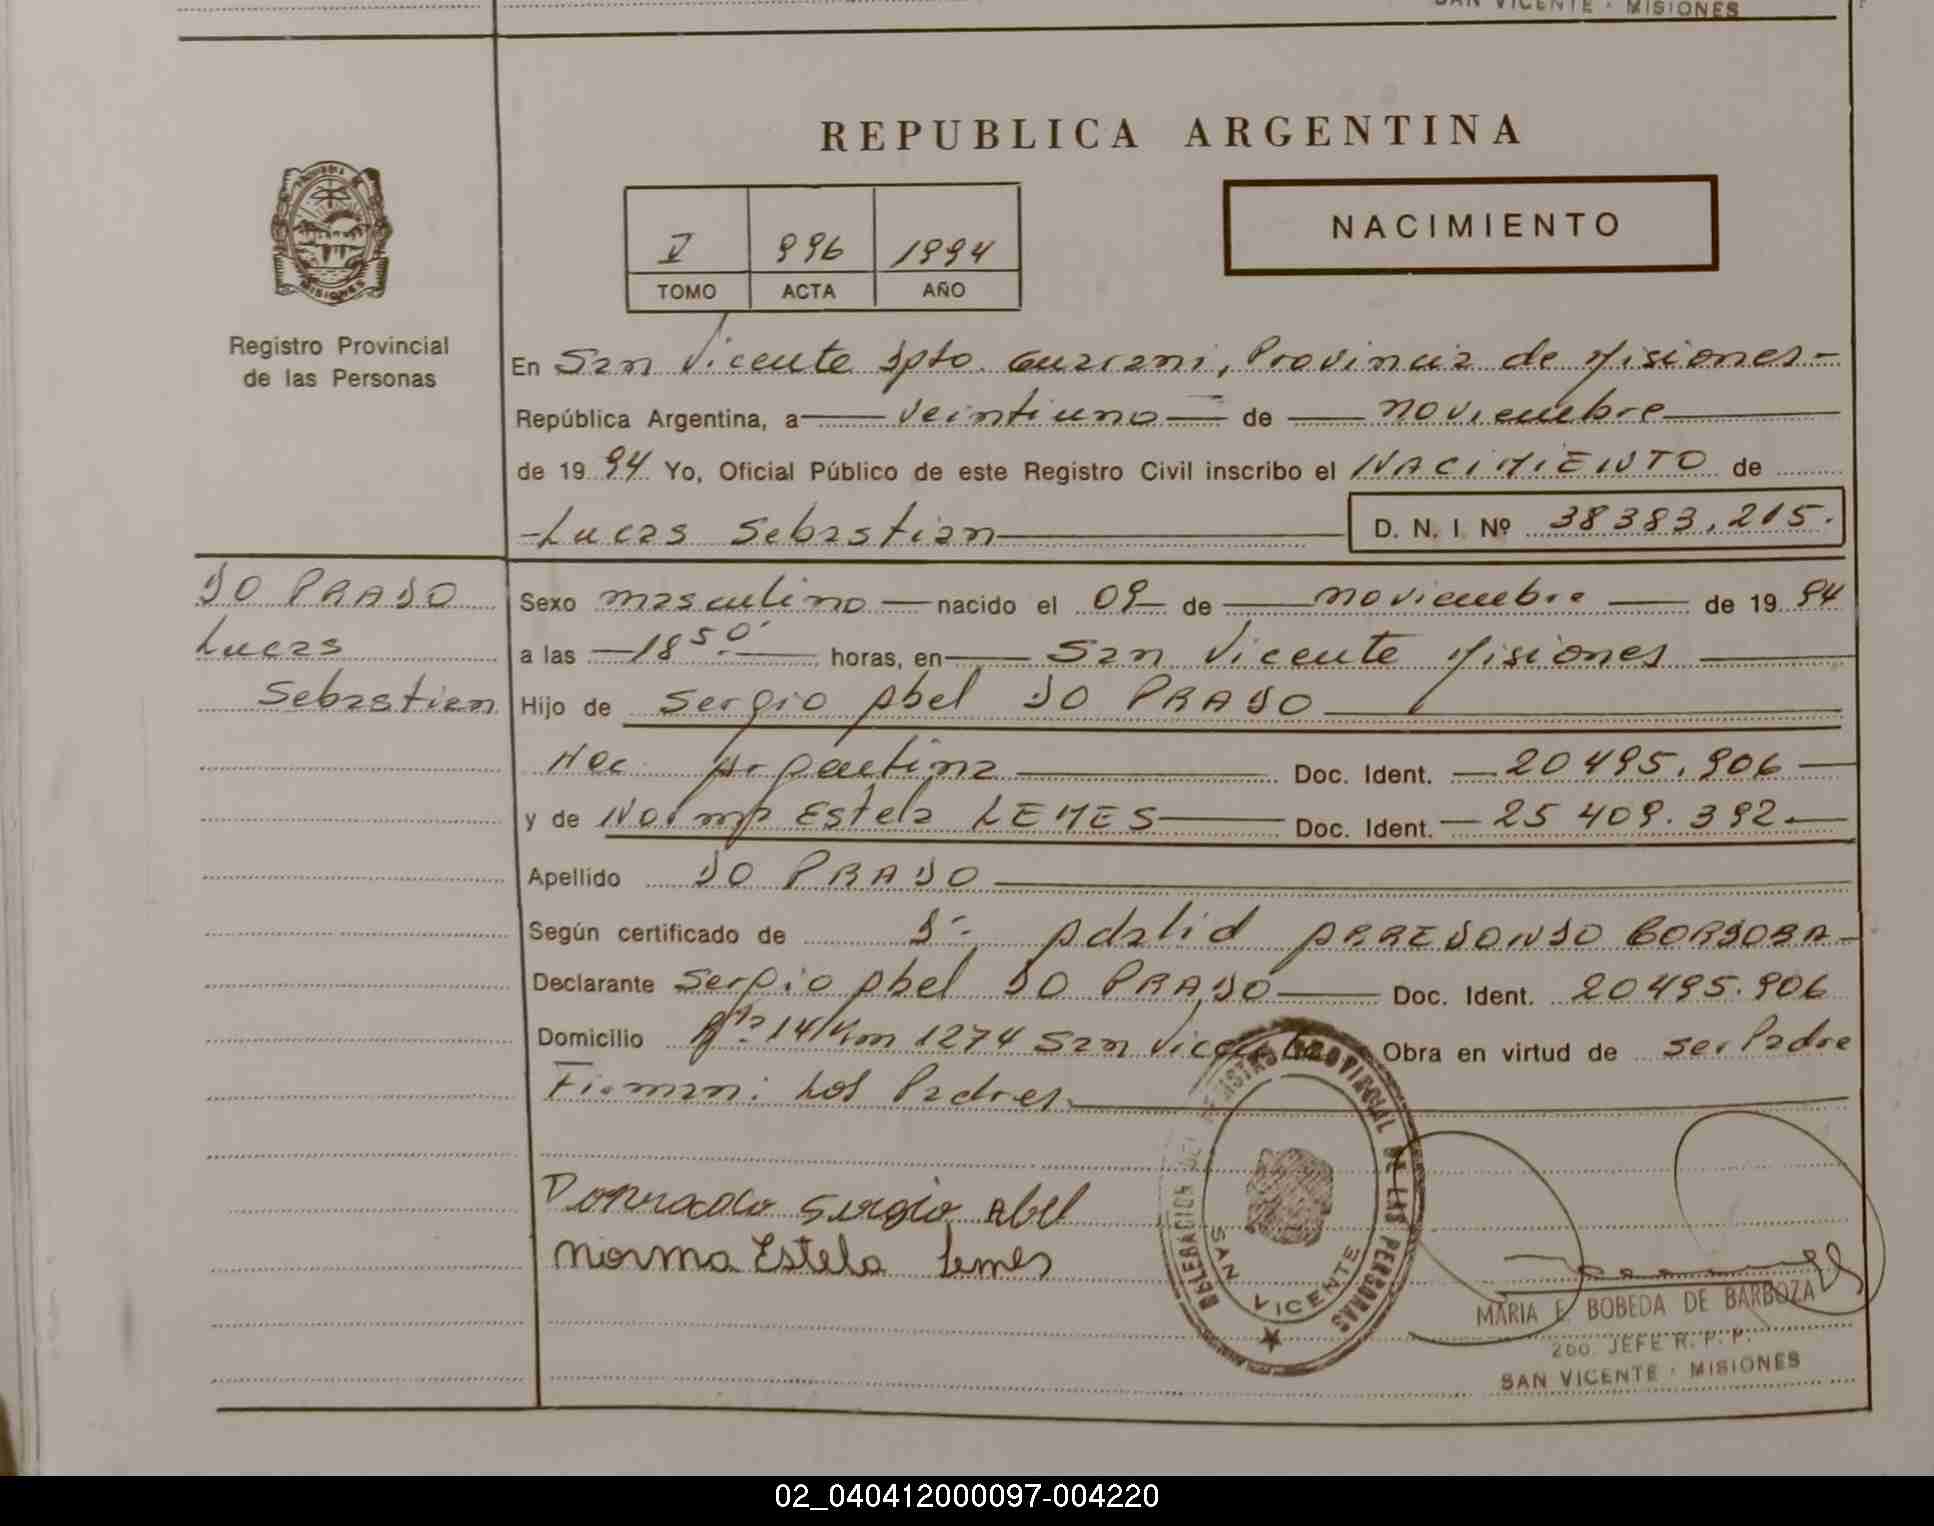 SAN VICENTE - MISIONES
REPUBLICA ARGENTINA
NACIMIENTO
V 996 1994
TOMO ACTA AÑO
MISIONES
Registro Provincial
de las Personas
En San Vicente Dpto. Guarani, Provincia de Misiones.-
República Argentina, a veintiuno de noviembre
de 19 94 Yo, Oficial Público de este Registro Civil inscribo el NACIMIENTO de
-Lucas Sebastian D. N. I. Nº 38383.215.
DO PRADO
Lucas
Sebastian
Sexo masculino nacido el 09 de noviembre de 19 94
a las 18 50' horas, en San Vicente Misiones
Hijo de Sergio Abel DO PRADO
Nac. Argentina Doc. Ident. 20495.906
y de Norma Estela LEMES Doc. Ident. 25 409.392.
Apellido DO PRADO
Según certificado de Dr. Adalid ARREDONDO BORDOBA-
Declarante Sergio Abel DO PRADO Doc. Ident. 20495.906
Domicilio Rta 14 Km 1274 San Vicente Obra en virtud de ser Padre
Firman: Los Padres.
Doprado Sergio Abel
Norma Estela Lemes
DELEGACION DEL REGISTRO PROVINCIAL DE LAS PERSONAS
SAN VICENTE
MARIA E. BOBEDA DE BARBOZA
2do. JEFE R. P. P.
SAN VICENTE - MISIONES
02_040412000097-004220